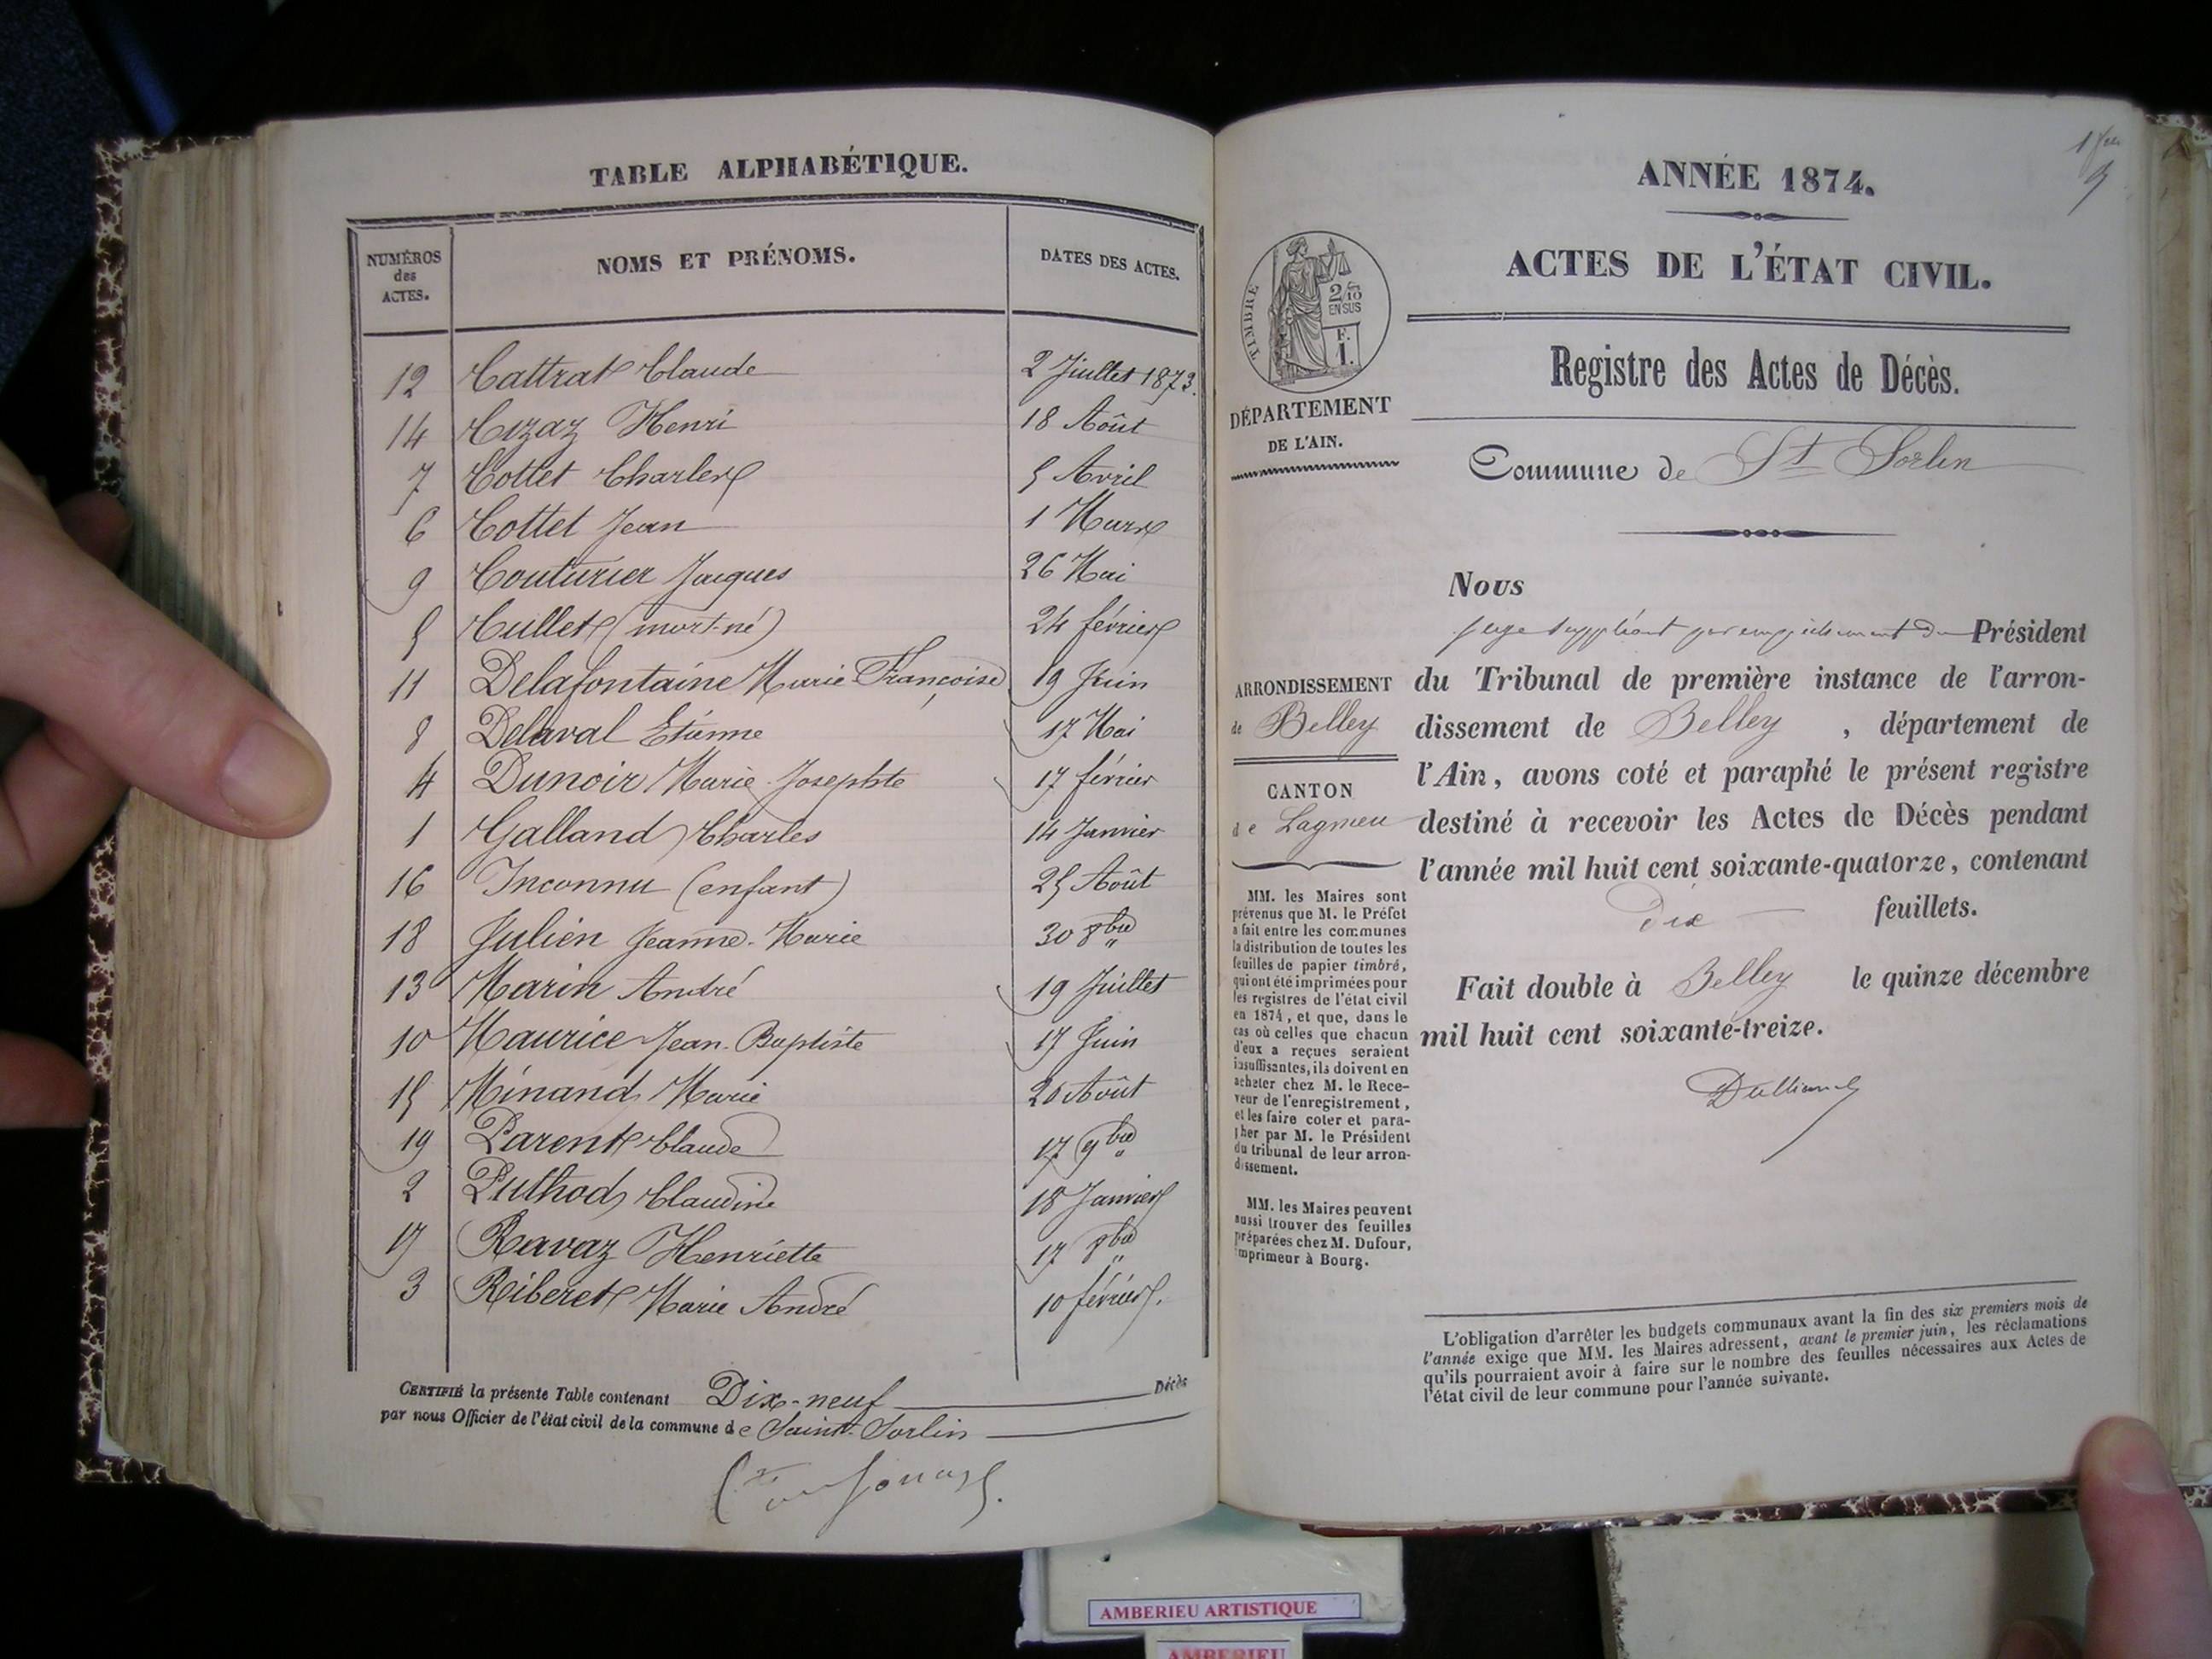 TABLE ALPHABÉTIQUE.
NUMÉROS des ACTES. NOMS ET PRÉNOMS. DATES DES ACTES.
12 Cattrat Claude 2 Juillet 1873.
14 Cizaz Henri 18 Août
7 Cottet Charles 5 Avril
6 Cottet Jean 1 Mars
9 Couturier Jacques 26 Mai
5 Cullet (mort-né) 24 février
11 Delafontaine Marie Françoise 19 Juin
8 Delaval Etienne 17 Mai
4 Dunoir Marie-Josephte 17 février
1 Galland Charles 14 Janvier
16 Inconnu (enfant) 25 Août
18 Julien Jeanne-Marie 30 8bre
13 Marin André 19 Juillet
10 Maurice Jean-Baptiste 17 Juin
15 Minand Marie 20 Août
19 Parent Claude 17 9bre
2 Puthod Claudine 18 Janvier
17 Ravaz Henriette 17 8bre
3 Riberet Marie André 10 février.
CERTIFIÉ la présente Table contenant Dix-neuf Décès
par nous Officier de l'état civil de la commune de Saint-Sorlin
ANNÉE 1874.
ACTES DE L'ÉTAT CIVIL.
TIMBRE
2/10
EN SUS
F.
1.
Registre des Actes de Décès.
DÉPARTEMENT
DE L'AIN.
Commune de St Sorlin
Nous
juge suppléant par empêchement du Président
du Tribunal de première instance de l'arron-
dissement de Belley, département de
l'Ain, avons coté et paraphé le présent registre
destiné à recevoir les Actes de Décès pendant
l'année mil huit cent soixante-quatorze, contenant
dix feuillets.
Fait double à Belley le quinze décembre
mil huit cent soixante-treize.
ARRONDISSEMENT
de Belley
CANTON
de Lagnieu
MM. les Maires sont
prévenus que M. le Préfet
a fait entre les communes
la distribution de toutes les
feuilles de papier timbré,
qui ont été imprimées pour
les registres de l'état civil
en 1874, et que, dans le
cas où celles que chacun
d'eux a reçues seraient
insuffisantes, ils doivent en
acheter chez M. le Rece-
veur de l'enregistrement,
et les faire coter et para-
pher par M. le Président
du tribunal de leur arron-
dissement.
MM. les Maires peuvent
aussi trouver des feuilles
préparées chez M. Dufour,
imprimeur à Bourg.
L'obligation d'arrêter les budgets communaux avant la fin des six premiers mois de
l'année exige que MM. les Maires adressent, avant le premier juin, les réclamations
qu'ils pourraient avoir à faire sur le nombre des feuilles nécessaires aux Actes de
l'état civil de leur commune pour l'année suivante.
AMBERIEU ARTISTIQUE
AMBERIEU